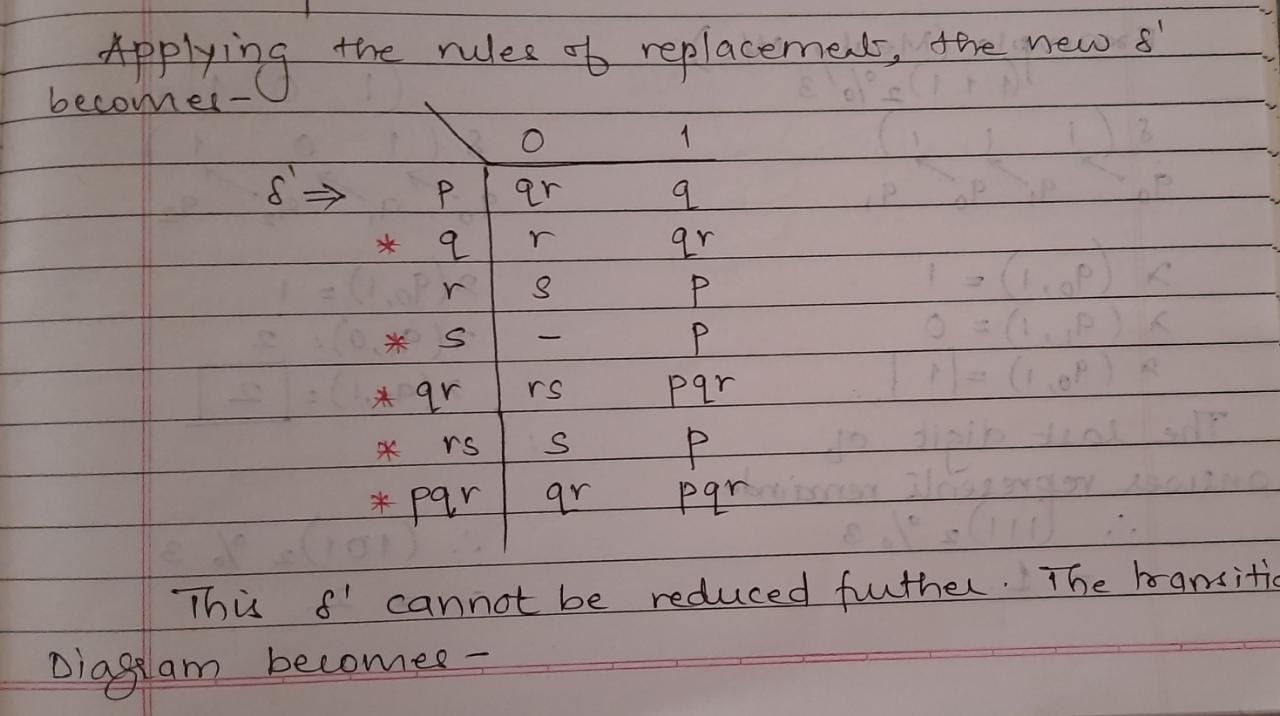 Applying the rules of replacement, the new δ'
becomes-
0 1
δ' ⇒ p qr q
* q r qr
r s p
* s - p
* qr rs pqr
* rs s p
* pqr qr pqr
This δ' cannot be reduced further. The transitio
Diagram becomes-